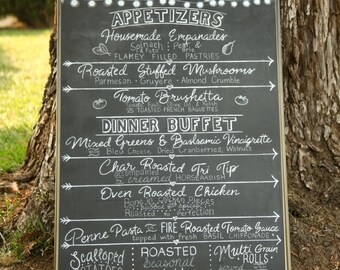 APPETIZERS
Housemade Empanades
Spinach & Feta & Pear &
FLAKEY FILLED PASTRIES
Roasted Stuffed Mushrooms
Parmesan · Gruyere · Almond Crumble
Tomato Brushetta
TOASTED FRENCH BAGUETTES
DINNER BUFFET
Mixed Greens & Baslsamic Vinaigrette
Bleu Cheese, Dried Cranberries, Walnuts
Char Roasted Tri Tip
accompanied
creamed HORSERADISH
Oven Roasted Chicken
Roasted to Perfection
Penne Pasta FIRE Roasted Tomato Sauce
topped with fresh BASIL CHIFFONADE
Scalloped
POTATOES
ROASTED
Seasonal
Multi Grain
ROLLS